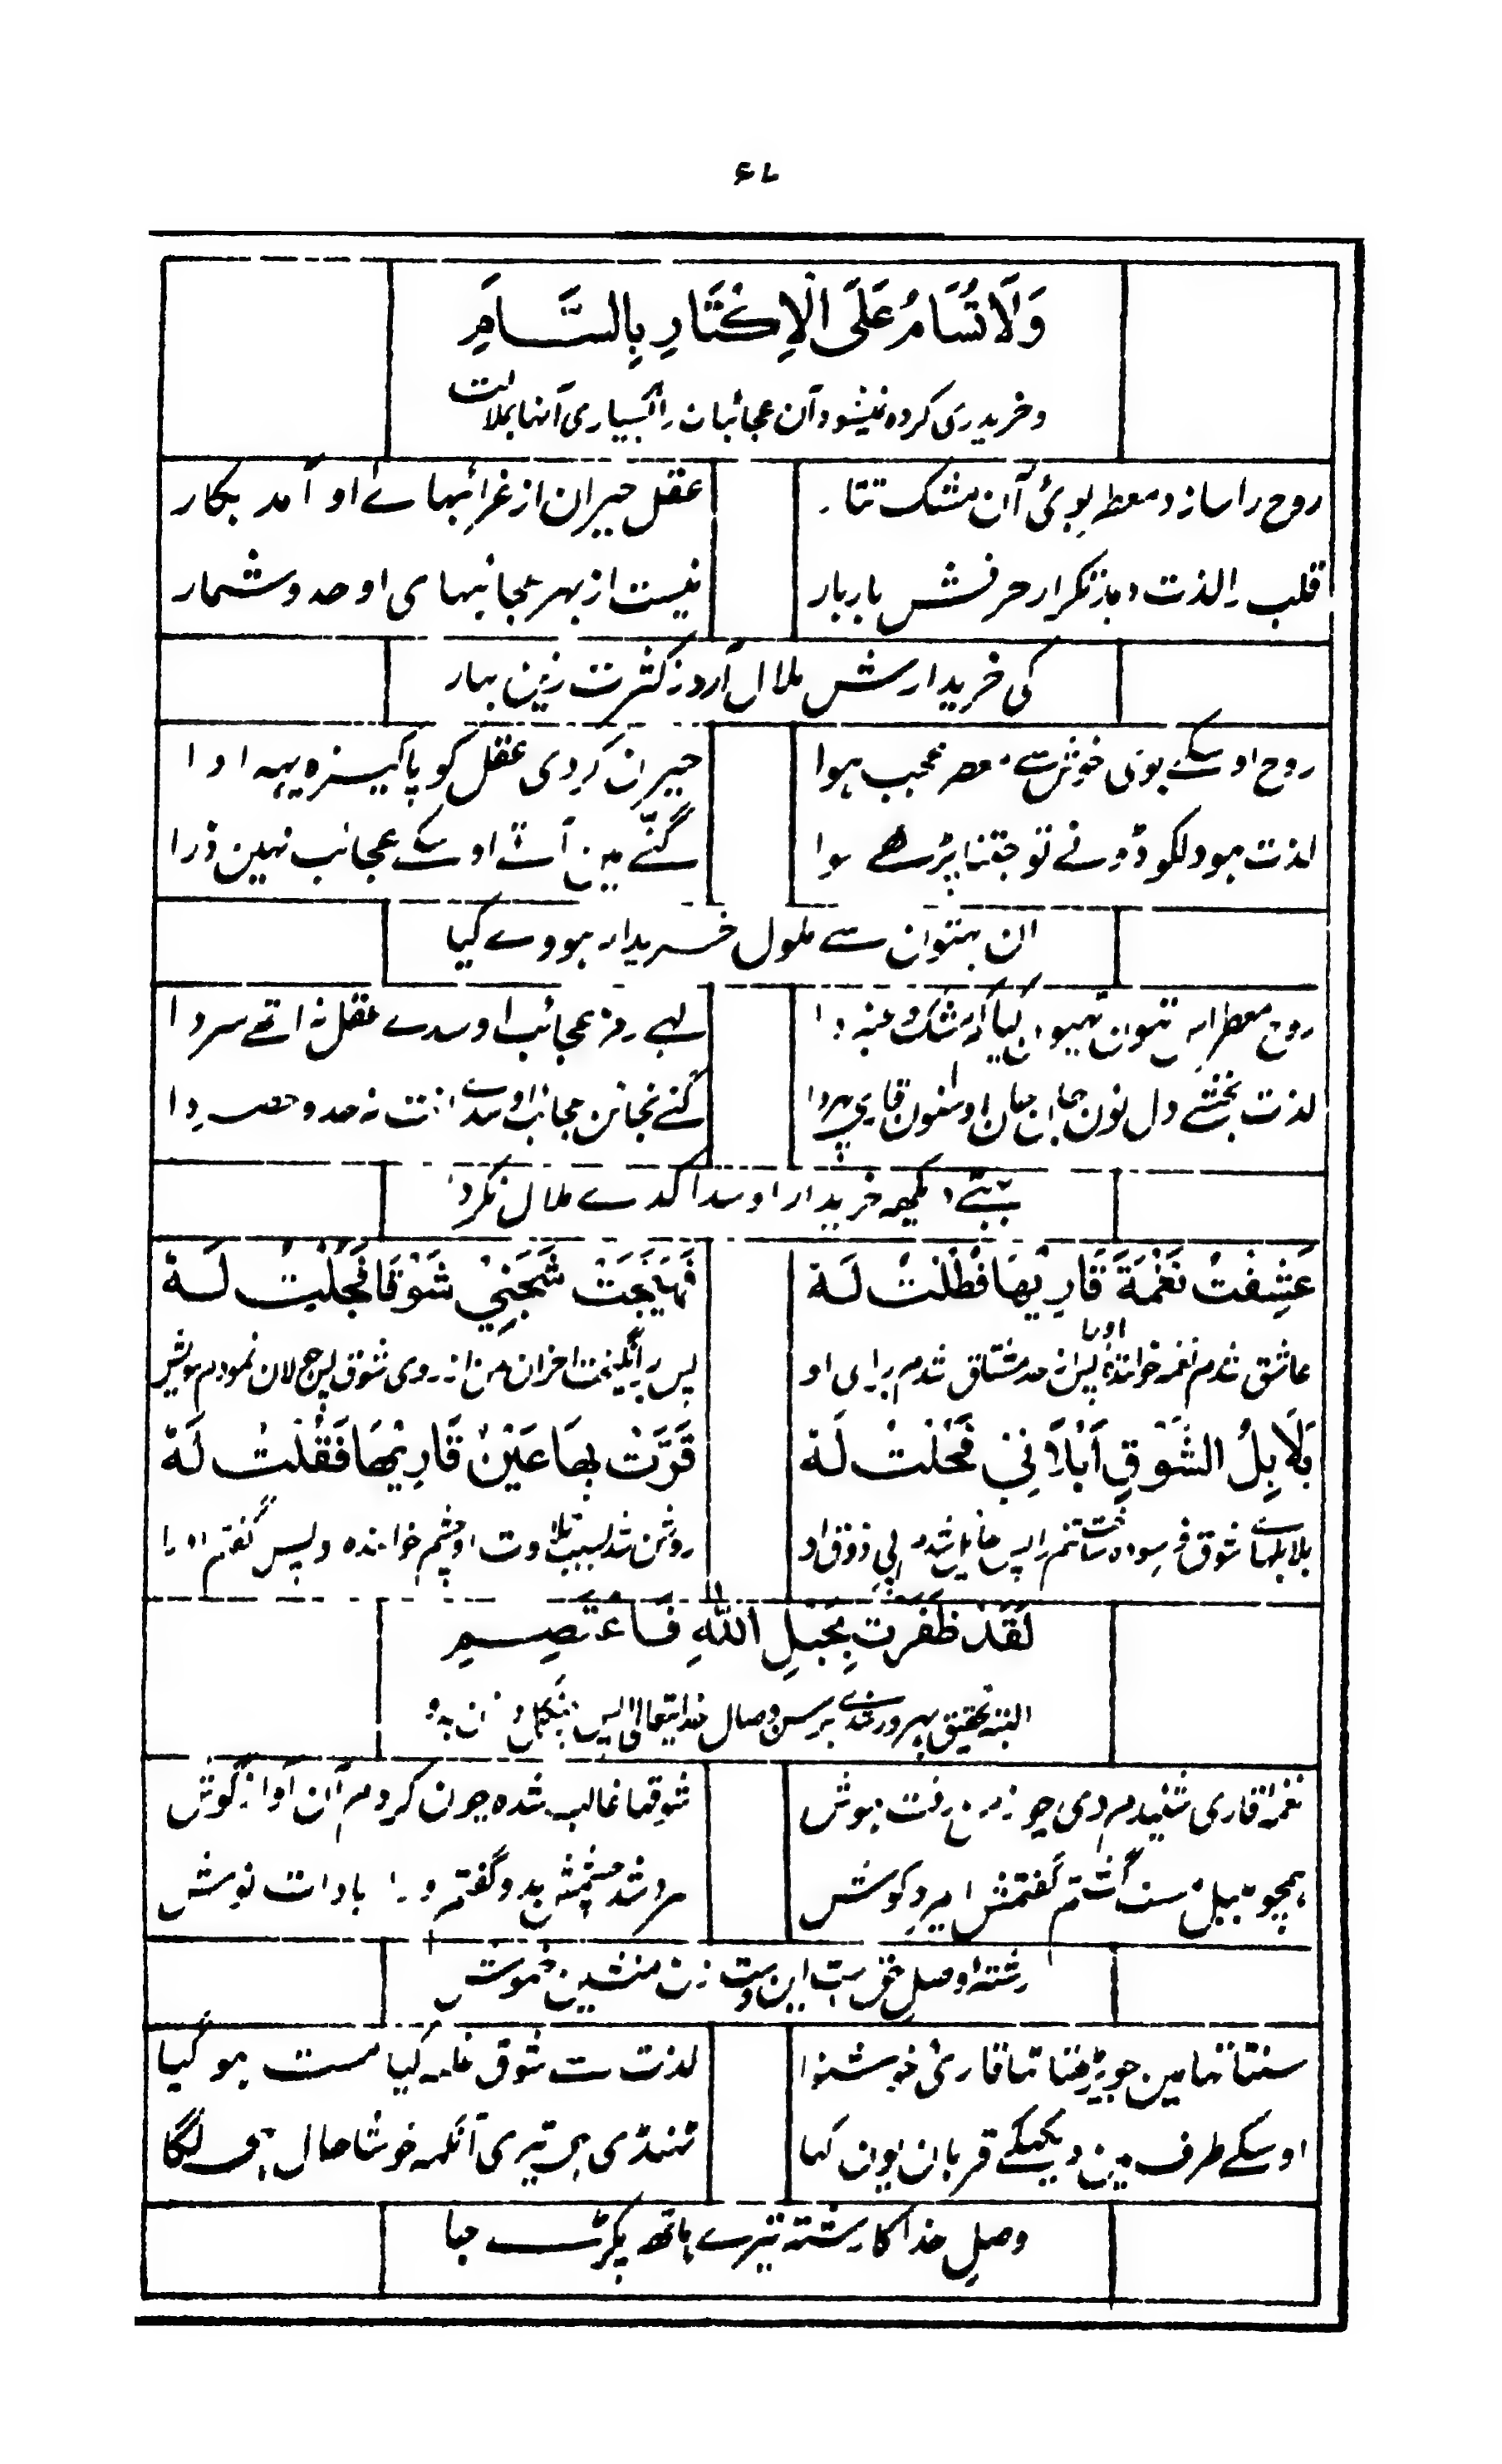 ۶۷
وَلَا تُسَامُ عَلَى الْاِكْثَارِ بِالسَّامِ
و خریدری کرده نمیشود آن عجائبات را بسیاری آنها بملالت
روح را سازد معطر بوئ آن مشک تتار
عقل حیران از غرائبهاے او آمد بکار
قلب را لذت دهد تکرار حرفش بار بار
نیست از بهر عجائبهای او حد و شمار
کی خریدارش ملال آرد ز کثرت زین بہار
روح اوسکے بوئی خوش سے محب ہوا
حیران کردی عقل کو پاکیزہ یہہ ادا
لذت ہو دلکو دونے تو جتنا پڑھے سوا
گنّے مین آتے اوسکے عجائب نہین ذرا
ان بہتون سے ملول خریدار ہووے کیا
روح معطر مشک و عنبر دا
رمز عجائب اوسدے عقل نہ اتھے سردا
لذت بخشے دل نون اوسنون قاری پڑہدا
گنے نجائن عجائب اوسدے انت نہ حد و حصر دا
دیکھہ خریدار اوسدا کدے ملال نکردا
عَشِقْتُ نَغْمَةَ قَارِیْهَا فَظَلْتُ لَهٗ
فَهَیَّجَتْ شَجَنِیْ شَوْقًا فَجُلْتُ لَهٗ
عاشق شدم نغمہ خوانندۂ اورا پس از حد مشتاق شدم برای او
پس برانگیخت احزان من از روی شوق پس جولان نمودم
بَلَابِلُ الشَّوْقِ اَبْلَانِیْ فَمِلْتُ لَهٗ
قَرَّتْ بِهَا عَیْنُ قَارِیْهَا فَقُلْتُ لَهٗ
بلابلہاے شوق تنم را پس مایل شدم پی ذوق او
روشن شد بسبب تلاوت او چشم خواننده و پس گفتم اورا
لَقَدْ ظَفِرْتَ بِحَبْلِ اللّٰهِ فَاعْتَصِمِ
البتہ تحقیق بہرور شدے برسن وصال خدایتعالیٰ پس چنگل زن بدو
نغمۂ قاری شنیدم چو ز من رفت ہوش
شوقہا غالب شده چون کردم آن آواز گوش
ہمچو بلبل مست گشتم گفتمش
سرد شد چشمش بدو گفتم ورا بادات نوش
رشتہ او وصل حق است این دست زن منشین خموش
سنتا تہا مین جو پڑہتا تہا قارئ خوشنوا
لذت سے شوق غلبہ کیا مست ہو گیا
اوسکے طرف مین دیکھکے قربان یون کہا
ٹہنڈی ہی تیری آنکہہ خوشا حال ہی لگا
وصلِ خدا کا رشتہ تیرے ہاتھہ پکڑ جیا